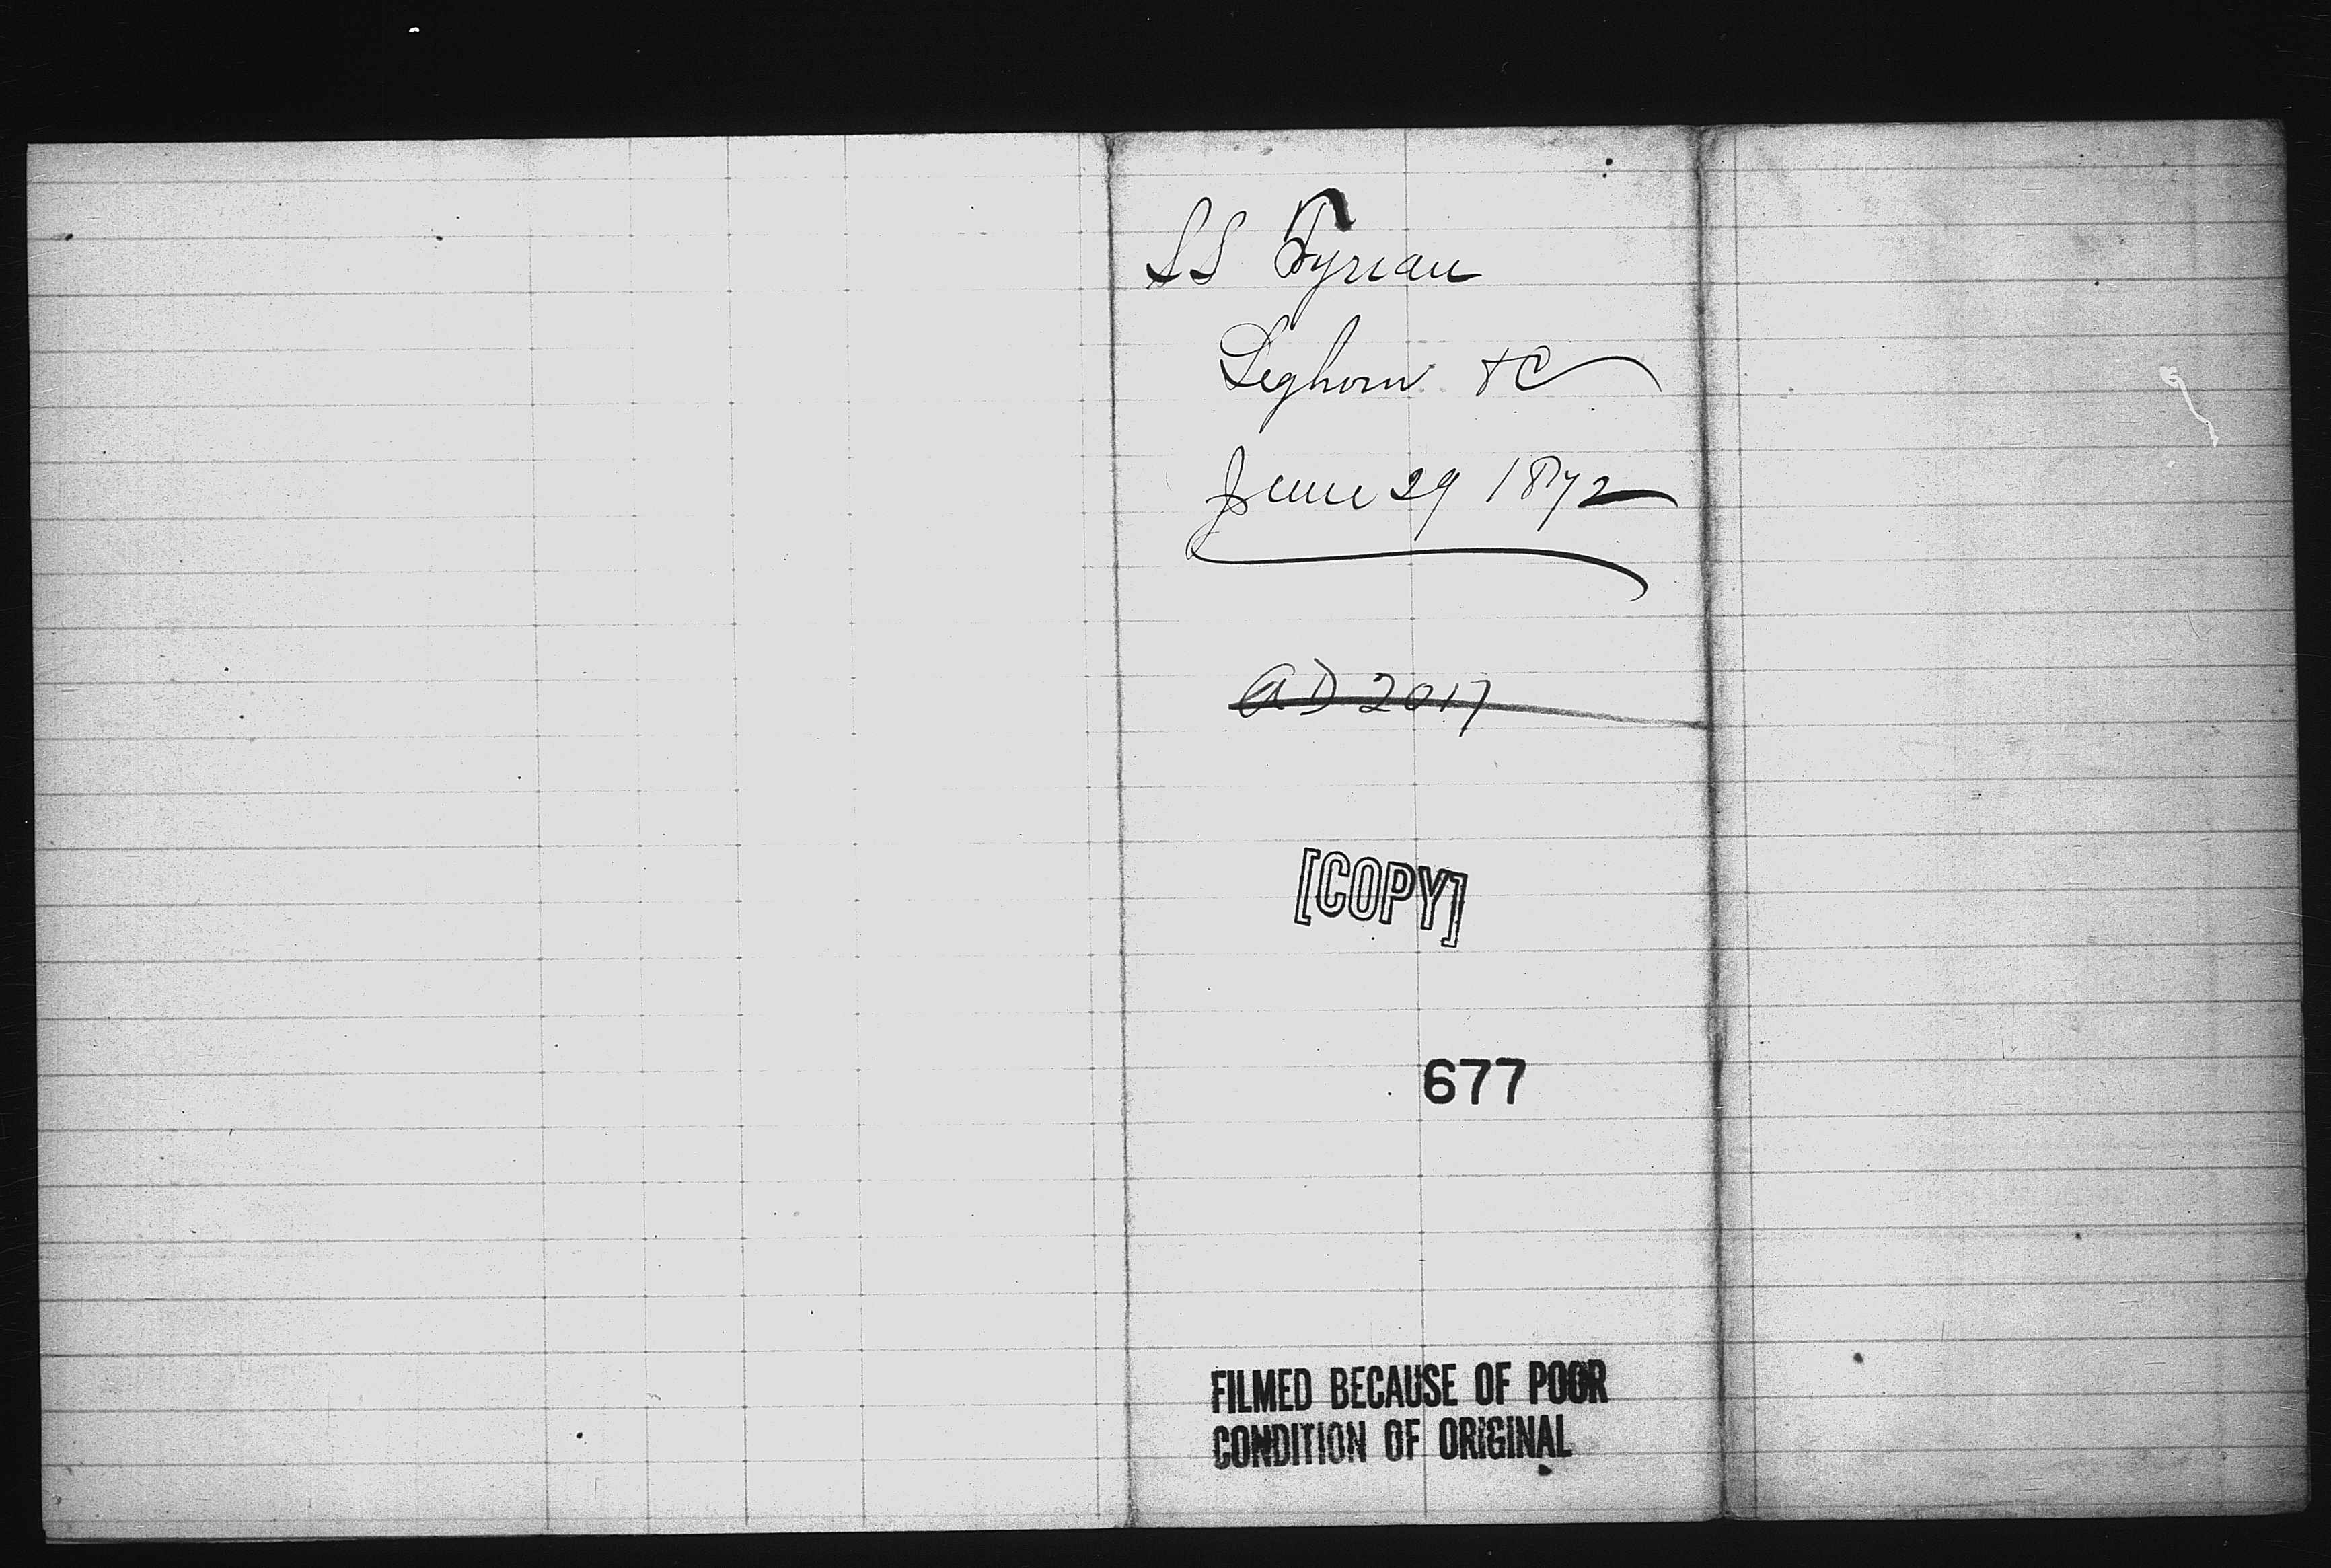 SS Tyrian
Leghorn +C
June 29 1872
AD 2017
[COPY]
677
FILMED BECAUSE OF POOR
CONDITION OF ORIGINAL